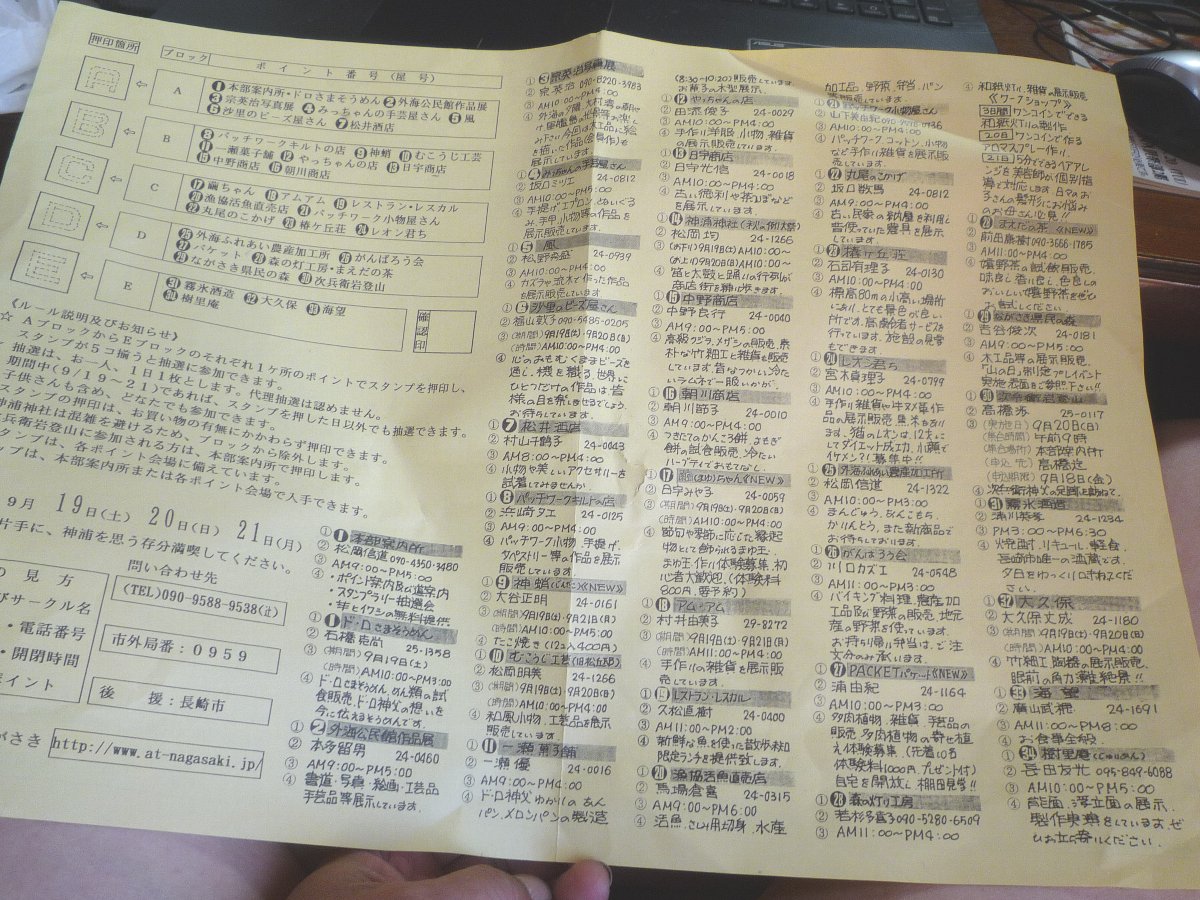 押印箇所
ブロック
ポイント番号(屋号)
A
❶本部案内所・ドロさまそうめん ❷外海公民館作品展
❸宗英治写真展 ❹みっちゃんの手芸屋さん ❺風
❻沙里のビーズ屋さん ❼松井酒店
B
❽パッチワークキルトの店 ❾神蛸 ❿むこうじ工芸
⓫一瀬菓子舗 ⓬やっちゃんの店 ⓭日宇商店
⓯中野商店 ⓰朝川商店
C
⓱繭ちゃん ⓲アムアム ⓳レストラン・レスカル
⓴漁協活魚直売店 ㉑パッチワーク小物屋さん
㉒丸尾のこかげ ㉓椿ケ丘荘 ㉔レオン君ち
D
㉕外海ふれあい農産加工所 ㉖がんばろう会
㉗パケット ㉘森の灯工房・まえだの茶
㉙ながさき県民の森 ㉚次兵衛岩登山
E
㉛霧氷酒造 ㉜大久保 ㉝海望
㉞樹里庵
確認印
A
B
C
D
E
《ルール説明及びお知らせ》
☆ AブロックからEブロックのそれぞれ1ケ所のポイントでスタンプを押印し、
スタンプが5コ揃うと抽選に参加できます。
抽選は、お一人、1日1枚とします。代理抽選は認めません。
期間中(9/19~21)であれば、スタンプを押した日以外でも抽選できます。
子供さんも含め、どなたでも参加できます。
スタンプの押印は、お買い物の有無にかかわらず押印できます。
神浦神社は混雑を避けるため、ブロックから除外します。
兵衛岩登山に参加される方は、本部案内所で押印します。
タンプは、各ポイント会場に備えています。
ップは、本部案内所または各ポイント会場で入手できます。
9月 19日(土) 20日(日) 21日(月)
片手に、神浦を思う存分満喫してください。
の見方
びサークル名
・電話番号
・開閉時間
ポイント
問い合わせ先
(TEL)090-9588-9538(辻)
市外局番:0959
後 援:長崎市
がさき http://www.at-nagasaki.jp/
①❶本部案内所
② 松岡信道 090-4350-3480
③ AM9:00~PM5:00
④ ・ポイント案内及び道案内
・スタンプラリー抽選会
・芋とイワシの無料提供
①❶ド・ロさまそうめん
② 石橋 25-1358
③ (期間)9月19日(土)
(時間)AM10:00~PM3:00
④ ドロさまそうめん、めん類の試
食販売、ドロ神父の想いを
今に伝えるそうめんです。
①❷外海公民館作品展
② 本多留男 24-0460
③ AM9:00~PM5:00
④ 書道・写真・絵画・工芸品
手芸品等展示しています。
①❸宗英治写真展
② 宗英治 090-8220-3983
③ AM10:00~PM4:00
④ 外海の夕陽、大村湾の朝や
展示しています。
①❹みっちゃんの手芸屋さん
② 坂口ミツエ 24-0812
③ AM10:00~PM5:00
④ 手提げエプロン、ぬいぐる
み、手甲、小物等の作品を
展示販売しています。
①❺風
② 松野 24-0939
③ AM10:00~PM4:00
④ カズラや流木で作った作品
を展示販売しています
①❻沙里のビーズ屋さん
② 福山敦子 090-5485-0205
③ (期間)9月19日(土)9月20日(日)
(時間)AM10:00~PM4:00
④ 心のおもむくままビーズを
通し、機を織る。世界に
ひとつだけの作品は、皆
様の目を楽しませるでしょう。
お待ちしています。
①❼松井酒店
② 村山千鶴子 24-0043
③ AM8:00~PM4:00
④ 小物や美しいアクセサリーを
試着してみませんか。
①❽パッチワークキルトの店
② 浜崎タエ 24-0125
③ AM9:00~PM4:00
④ パッチワーク小物、手提げ、
タペストリー等、作品を展示
販売しています。
①❾神蛸(じんだこ)《NEW》
② 大谷正明 24-0161
③ (期間)9月19日(土)9月21日(月)
(時間)AM10:00~PM5:00
④ たこ焼き(12コ入400円)
①❿むこうじ工芸(旧松広邸)
② 松岡明美 24-1266
③ (期間)9月19日(土)9月20日(日)
(時間)AM10:00~PM4:00
④ 和風小物、工芸品を展示
販売しています。
①⓫一瀬菓子舗
② 一瀬 優 24-0016
③ AM9:00~PM4:00
④ ド・ロ神父ゆかりの あん
パン、メロンパンの製造
(8:30~10:20)販売しています
お菓子の木型展示。
①⓬やっちゃんの店
② 田添俊子 24-0029
③ AM10:00~PM4:00
④ 手作り洋服、小物、雑貨
の展示販売しています。
①⓭日宇商店
② 日宇光信 24-0018
③ AM10:00~PM4:00
④ 古い徳利や茶わんなど
を展示しています。
①⓮神浦神社(秋の例大祭)
② 松岡 均 24-1266
③ (お下り)9月19日(土)AM10:00~
(お上り)9月20日(日)AM10:00~
④ 笛と太鼓と踊りの行列が
商店街を練り歩きます。
①⓯中野商店
② 中野良行 24-0040
③ AM9:00~PM5:00
④ 高級グラス、メザシの販売、素
朴な竹細工と雑貨も販売
しています。昔なつかしい冷た
いラムネで一服いかが。
①⓰朝川商店
② 朝川節子 24-0010
③ AM9:00~PM4:00
④ つきたてのかんころ餅、よもぎ
餅の試食販売、冷たい
ハーブティでおもてなし。
①⓱繭(まゆ)ちゃん《NEW》
② 日宇みや子 24-0059
③ (期間)9月19日(土)9月20日(日)
(時間)AM10:00~PM4:00
④ 節句や季節に応じた縁起
物として飾られるまゆ玉。
まゆ玉作り体験募集、初
心者大歓迎、(体験料
800円、要予約)
①⓲アム・アム
② 村井由美子 29-8272
③ (期間)9月19日(土)9月21日(月)
(時間)AM11:00~PM4:00
④ 手作りの雑貨を展示販
売しています。
①⓳レストラン・レスカル
② 久松直樹 24-0400
③ AM11:00~PM4:00
④ 新鮮な魚を使った散歩未知
限定ランチを提供致します。
①⓴漁協活魚直売店
② 馬場倉 24-0315
③ AM9:00~PM6:00
④ 活魚、さしみ用切身、水産
加工品、野菜、弁当、パン
等販売しています。
①㉑パッチワーク小物屋さん
② 山下美由紀
③ AM10:00~PM4:00
④ パッチワーク、コットン、小物
など手作り雑貨を展示販
売しています。
①㉒丸尾のこかげ
② 坂口数馬 24-0812
③ AM9:00~PM4:00
④ 古い民家の納屋を利用し
昔使っていた農具を展示
しています。
①㉓椿ヶ丘荘
② 石司有理子 24-0130
③ AM10:00~PM4:00
④ 標高80mの小高い場所
にあり、とても景色が良い
所です。高齢者サービスを
行っています。施設の見学
もできます。
①㉔レオン君ち
② 宮真理子 24-0799
③ AM10:00~PM4:00
④ 手作り雑貨や牛刃草作
品の展示販売、黒米もあり
ます。猫のレオンは、12才に
してダイエット成功、小顔で
イケメン?!募集中!!
①㉕外海ふれあい農産加工所
② 松岡信道 24-1322
③ AM10:00~PM3:00
④ まんじゅう、あんこもち、
かりんとう、また新商品で
お待ちしております。
①㉖がんばろう会
② 川口カズエ 24-0548
③ AM11:00~PM3:00
④ バイキング料理、農産加工
品及び野菜の販売、地元
産の野菜を使っています。
お持ち帰り弁当は、ご注
文分のみ承います。
①㉗PACKETパケット《NEW》
② 浦由紀 24-1164
③ AM10:00~PM3:00
④ 多肉植物、雑貨、手芸品の
販売、多肉植物の寄せ植
え体験募集(先着10名
体験料1000円、プレゼント付)
自宅を開放し、棚田見学!!
①㉘森の灯り工房
② 若杉多喜子 090-5280-6509
③ AM11:00~PM4:00
④ 和紙灯り、雑貨の展示販売
《ワークショップ》
3日間 ワンコインでできる
和紙灯りの製作
20日 ワンコインで作る
アロマスプレー作り
21日 5分でできるヘアアレ
ンジを美容師が個別指
導で対応します。日々のお
子さんの髪形にお悩み
のお母さん必見!!
①㉘まえだの茶《NEW》
② 前田康樹 090-3660-1785
③ AM9:00~PM5:00
④ 嬉野茶の試飲販売、
味良し、香り良し、色良しの
おいしい嬉野茶をぜひ
お試しください
①㉙ながさき県民の森
② 吉谷俊次 24-0181
③ AM9:00~PM5:00
④ 木工品等の展示販売
「山の日」制定プレイベント
実施、裏面をご参照下さい!!
①㉚次兵衛岩登山
② 高橋 25-0117
③ (実施日)9月20日(日)
(集合時間)午前9時
(集合場所)本部案内所
(申込先)高橋迄
(申込期限)9月18日(金)
④ 次兵衛神父の足跡を訪ねて。
①㉛霧氷酒造
② 浦川 24-1234
③ PM3:00~PM6:30
④ 焼酎、リキュール、軽食、
長崎市唯一の酒蔵です。
夕日をゆっくりご覧くださ
い。
①㉜大久保
② 大久保文成 24-1180
③ (期間)9月19日(土)9月20日(日)
(時間)AM10:00~PM4:00
④ 竹細工、陶器の展示販売、
眼前の角力灘、絶景!!
①㉝海望
② 廣山武雅 24-1691
③ AM11:00~PM8:00
④ お食事全般。
①㉞樹里庵(じゅりあん)
② 吉田友光 095-849-6088
③ AM10:00~PM5:00
④ 能面、浮立面の展示、
製作実演をしています。ぜ
ひお立寄りください。